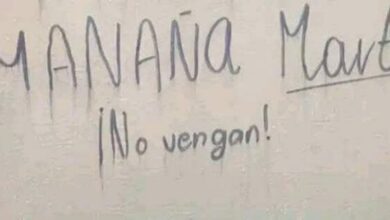 MANAÑA Mart
¡No vengan!